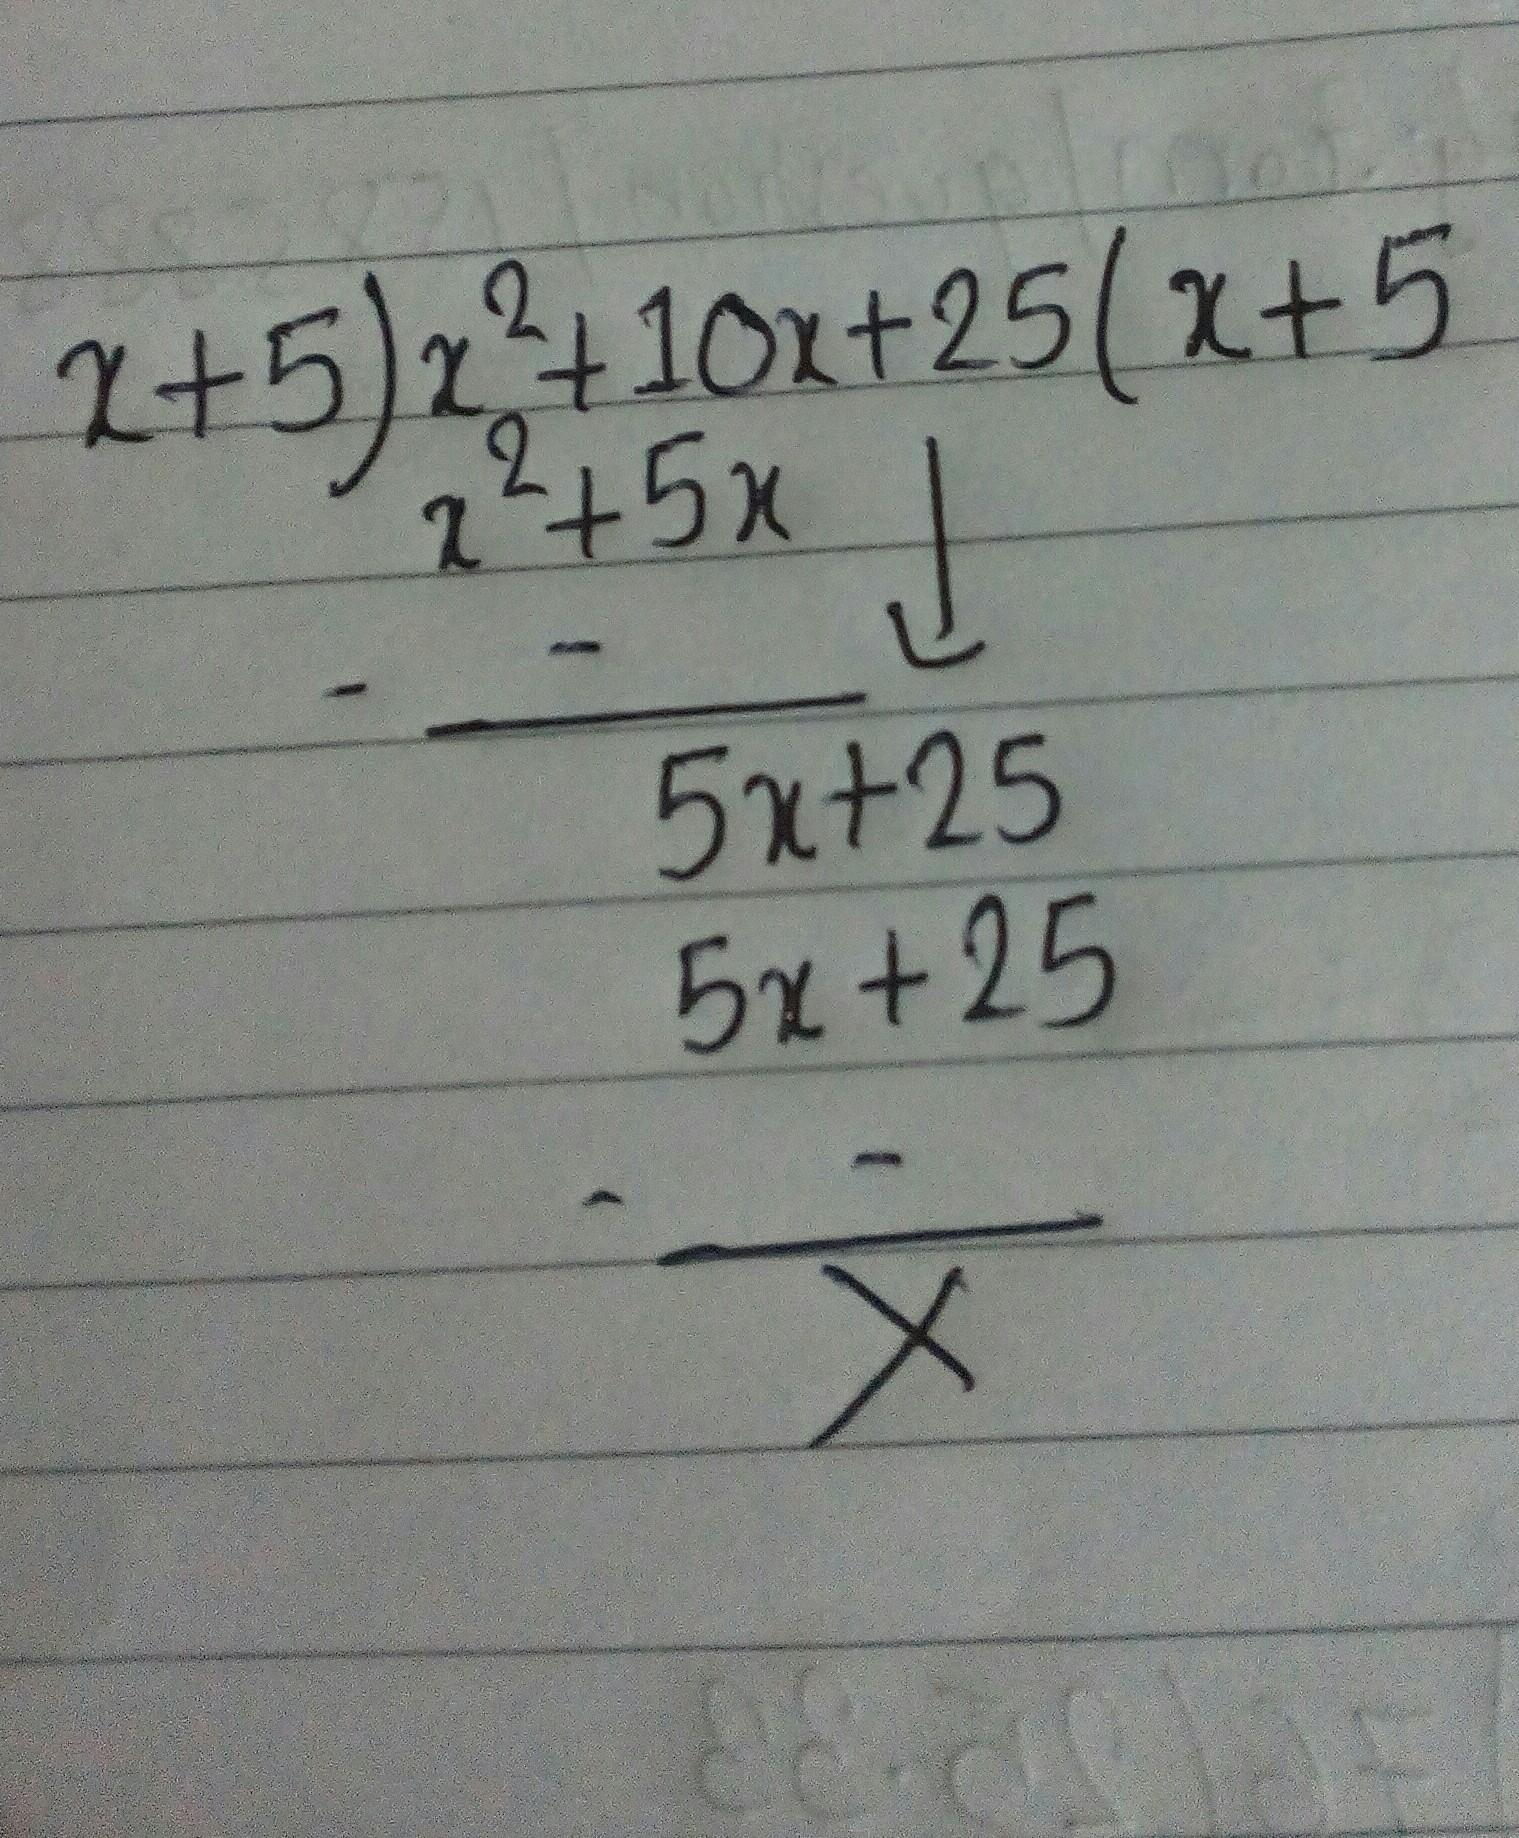 x+5)x²+10x+25(x+5
x²+5x
- -
5x+25
5x+25
- -
X